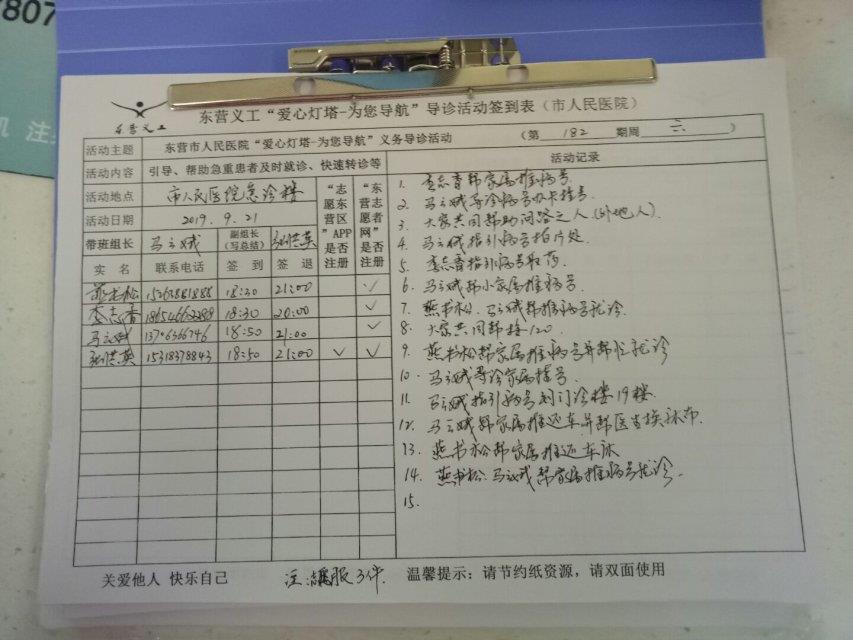 807
机 注
东营义工
东营义工“爱心灯塔-为您导航”导诊活动签到表（市人民医院）
（第 182 期周 六 ）
活动主题 东营市人民医院“爱心灯塔-为您导航”义务导诊活动
活动内容 引导、帮助急重患者及时就诊、快速转诊等
活动地点 市人民医院急诊楼
活动日期 2019.9.21
带班组长 马立娥 副组长（写总结） 张洪英
“志愿东营区”APP是否注册
“东营志愿者网”是否注册
实名 联系电话 签到 签退
燕书松 15263881888 18:30 21:00 ✓
李志香 18654662289 18:30 20:00 ✓
马立娥 13706366746 18:50 21:00 ✓
张洪英 15318378843 18:50 21:00 ✓ ✓
活动记录
1. 李志香帮家属推病号
2. 马立娥导诊病号办卡挂号
3. 大家共同帮助问路之人（外地人）
4. 马立娥指引病号拍片处
5. 李志香指引病号取药
6. 马立娥帮小家属推病号
7. 燕书松、马立娥帮推病号就诊
8. 大家共同帮接120
9. 燕书松帮家属推病号并帮忙就诊
10. 马立娥导诊家属挂号
11. 马立娥指引病号到门诊楼19楼
12. 马立娥帮家属推还车并帮医生换床布
13. 燕书松帮家属推还车床
14. 燕书松、马立娥帮家属推病号就诊
15.
关爱他人 快乐自己
注: 服3件
温馨提示：请节约纸资源，请双面使用